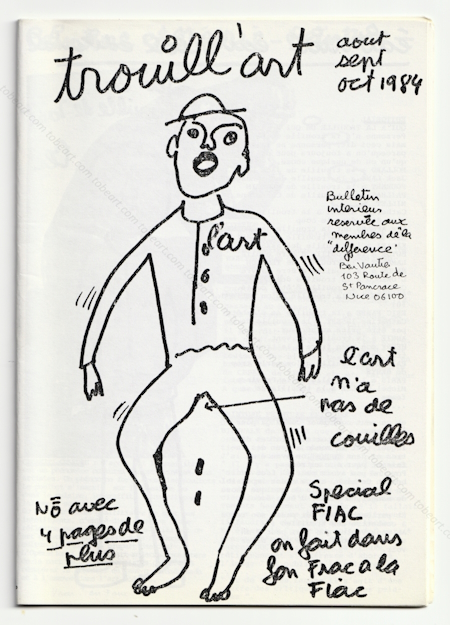 trouill'art
aout
sept
oct 1984
Bulletin
interieur
reservée aux
membres de la
"difference"
Ben Vautier
103 Route de
St Pancrace
Nice 06100
l'art
l'art
n'a
pas de
couilles
Special
FIAC
on fait dans
son Frac a la
Fiac
No avec
4 pages de
plus